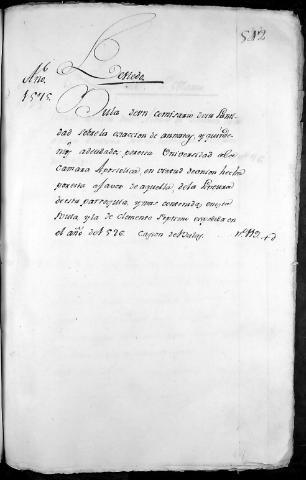 512
Año.
1575.
Bula de un comisario de su Santi-
dad sobre la exaccion de annatas, y quinde-
nios adeudados por esta Universidad a la
Camara Apostolica, en virtud de union hecha
por esta a favor de aquella, de la
de esta parroquia, y mas contenido en esta
Bula, y la de Clemente Septimo expedida en
el año de 1526. Cajon de Bulas. nº 119.